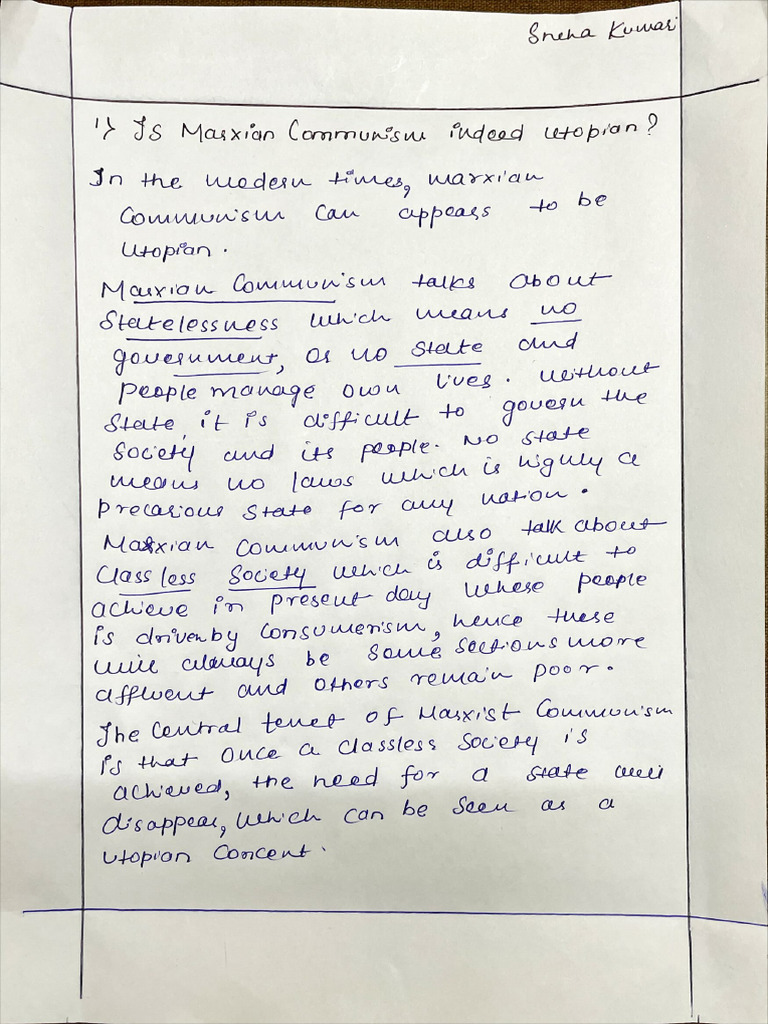 Sneha Kumari
1) Is Marxian Communism indeed utopian?
In the modern times, marxian
Communism can appears to be
Utopian.
Marxian Communism talks about
Statelessness which means no
government, or no state and
people manage own lives. Without
State, it is difficult to govern the
Society and its people. No state
means no laws which is highly a
precarious state for any nation.
Marxian Communism also talk about
Classless Society which is difficult to
achieve in present day where people
is driven by consumerism, hence there
will always be some sections more
affluent and others remain poor.
The central tenet of Marxist Communism
is that once a classless society is
achieved, the need for a state will
disappear, which can be seen as a
utopian concent.